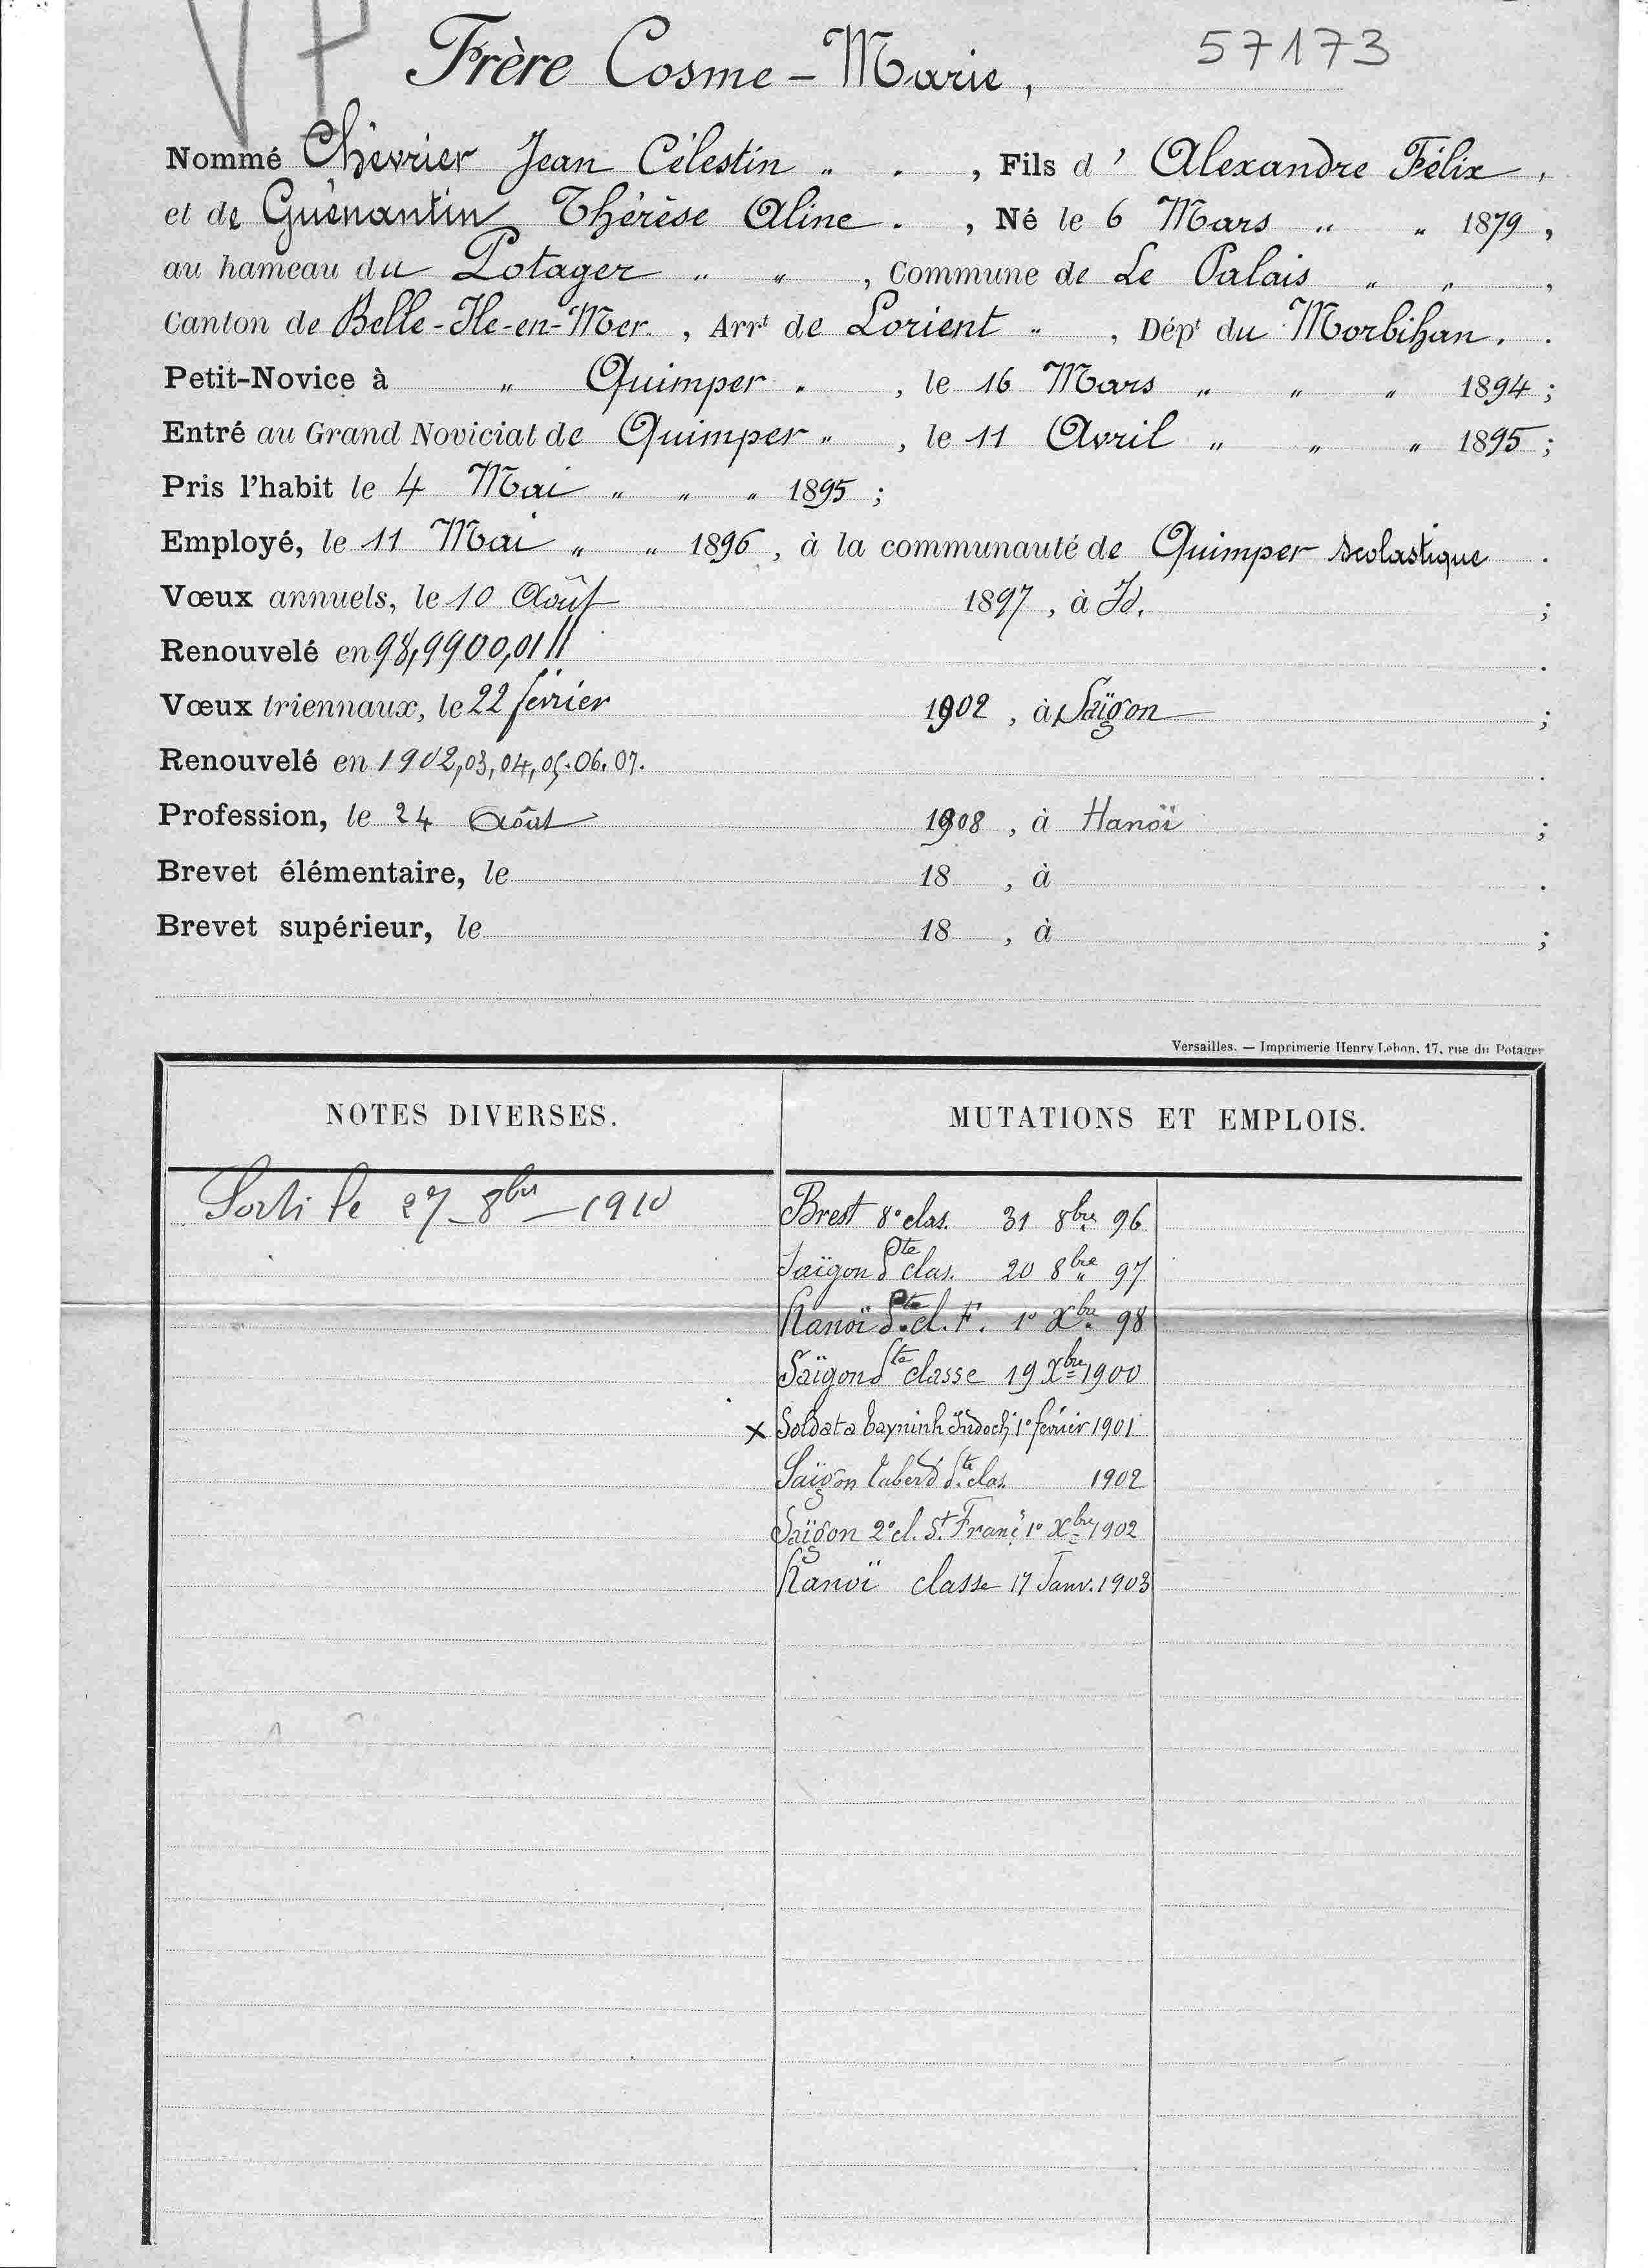 VP
Frère Cosme-Marie,
57173
Nommé Chévrier Jean Célestin " . , Fils d' Alexandre Félix,
et de Guénantin Thérèse Aline. , Né le 6 Mars " " 1879,
au hameau du Potager " " , Commune de Le Palais " " ,
Canton de Belle-Ile-en-Mer. , Arrt de Lorient " , Dépt du Morbihan. .
Petit-Novice à " Quimper . , le 16 Mars " " " 1894 ;
Entré au Grand Noviciat de Quimper " , le 11 Avril " " " 1895 ;
Pris l'habit le 4 Mai " " " 1895 ;
Employé, le 11 Mai " " 1896 , à la communauté de Quimper scolastique .
Vœux annuels, le 10 Août 1897 , à Id. ;
Renouvelé en 98,9900,01 // .
Vœux triennaux, le 22 février 1902 , à Saïgon ;
Renouvelé en 1902,03,04,05.06.07. .
Profession, le 24 Août 1908 , à Hanoï ;
Brevet élémentaire, le 18 , à .
Brevet supérieur, le 18 , à ;
Versailles. — Imprimerie Henry Lebon, 17, rue du Potager
NOTES DIVERSES.
MUTATIONS ET EMPLOIS.
Sorti le 27 - 8bre - 1910
Brest 8e clas. 31 8bre 96
Saïgon Pte clas. 20 8bre 97
Hanoï cl. F. 1er Xbre 98
Saïgon classe 19 Xbre 1900
x Soldat a Tayninh Indoch. 1er février 1901
Saïgon Taberd clas. 1902
Saïgon 2e cl. St Franç. 1er Xbre 1902
Hanoï classe 17 Janv. 1903